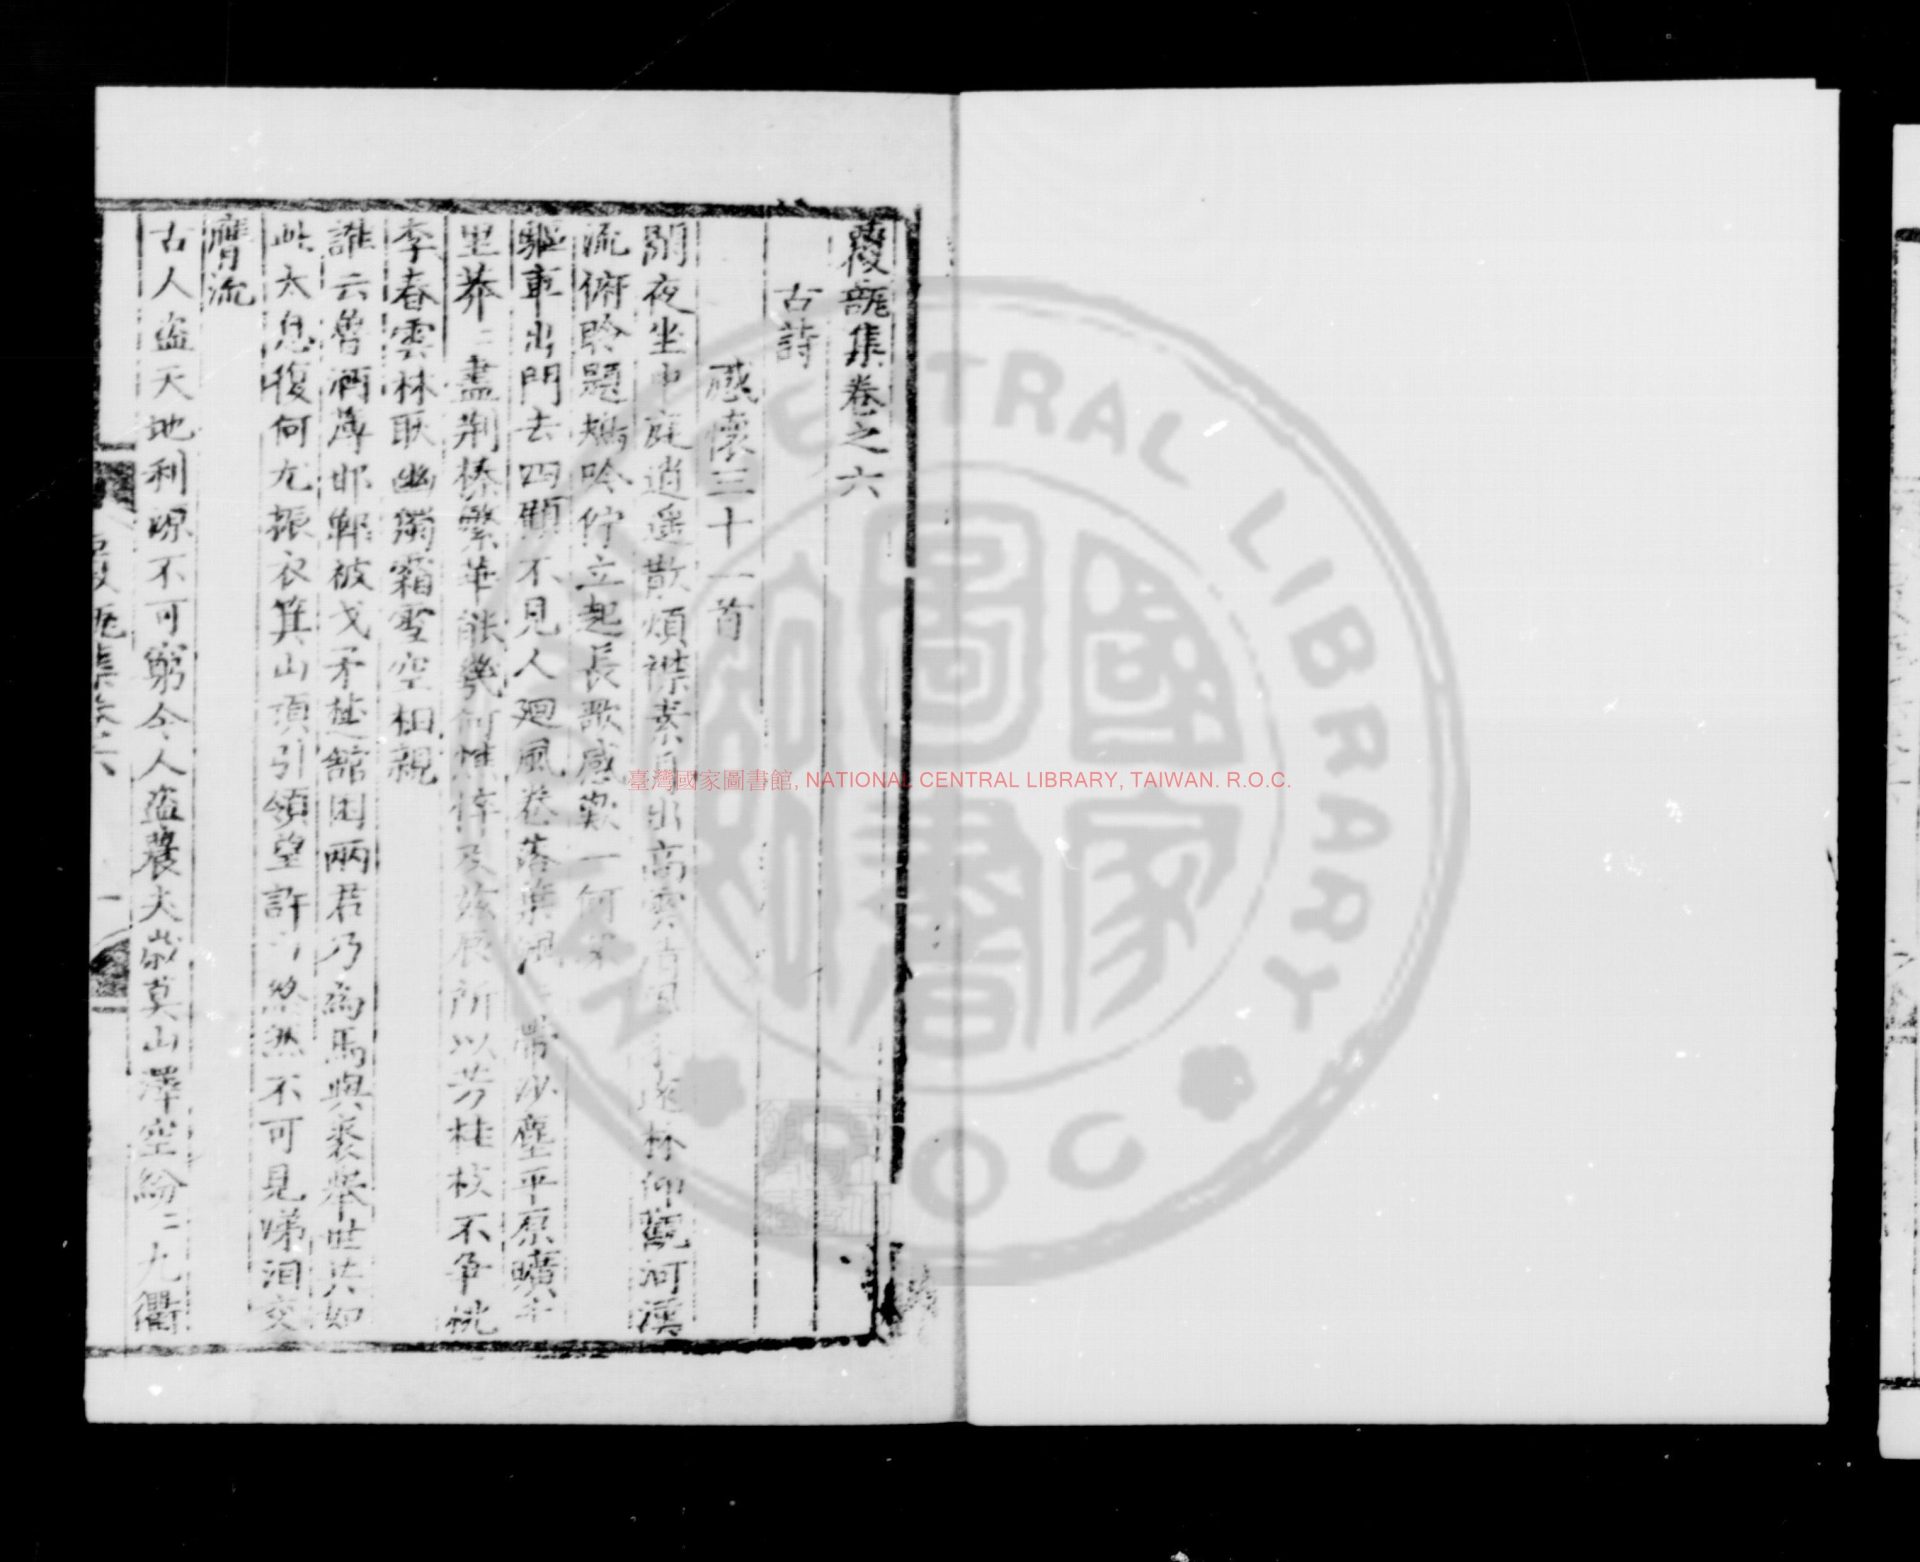 覆瓿集卷之六
古詩
感懷三十一首
閑夜坐中庭逍遙散煩襟素月出高雲林仰觀河漢
流俯聆題鴂吟佇立起長歌感歎一何
驅車出門去四顧不見人廻風卷落葉帶沙塵平原曠千
里莽〻盡荆榛繁華能幾何憔悴及茲辰所以芳桂枝不爭桃
李春雲林耿幽獨霜雪空相親
誰云魯酒薄邯鄲被戈矛楚舘困兩君乃為馬與裘舉世共如
此太息復何尤振衣箕山頂引領望許不可見涕泪交
膺流
古人盗天地利源不可窮今人盗農夫嵗莫山澤空紛〻九衢
覆瓿集卷六
一
臺灣國家圖書館, NATIONAL CENTRAL LIBRARY, TAIWAN. R.O.C.
NATIONAL CENTRAL LIBRARY
R.O.C.
國家圖書館